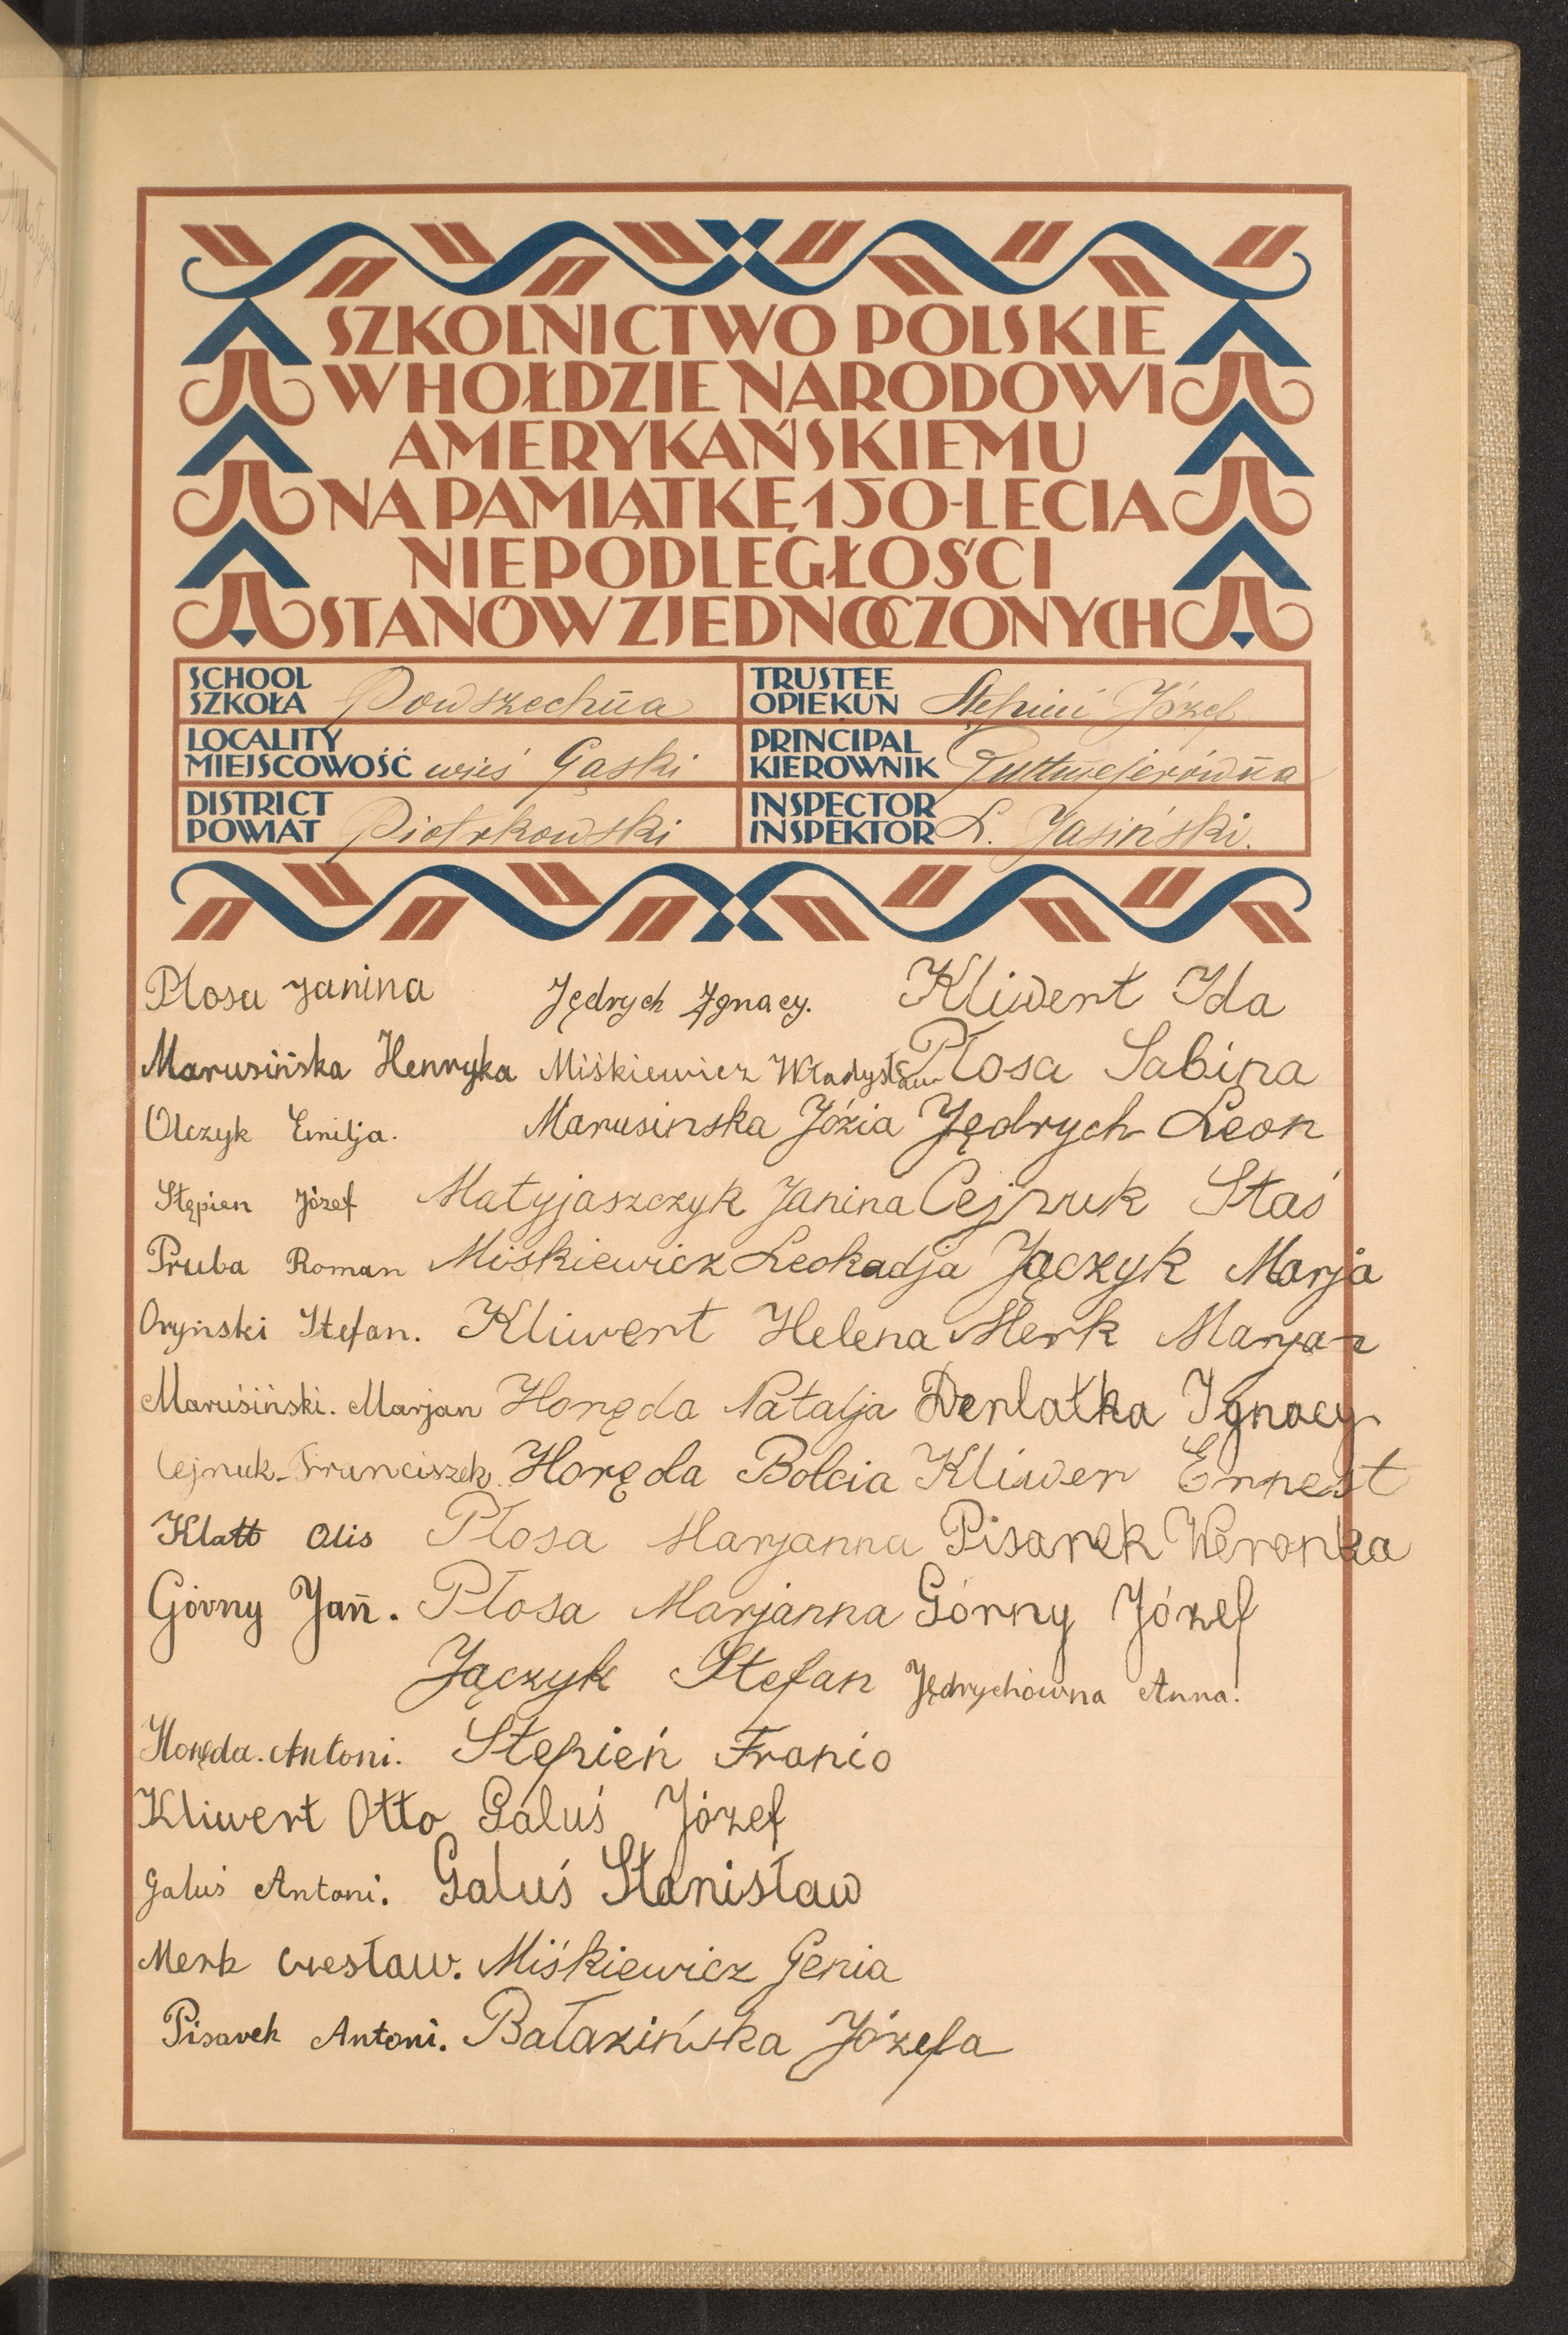 SZKOLNICTWO POLSKIE
W HOŁDZIE NARODOWI
AMERYKAŃSKIEMU
NA PAMIĄTKĘ 150-LECIA
NIEPODLEGŁOŚCI
STANÓW ZJEDNOCZONYCH
SCHOOL
SZKOŁA Powszechna
TRUSTEE
OPIEKUN Stępień Józef
LOCALITY
MIEJSCOWOŚĆ wieś Gąski
PRINCIPAL
KIEROWNIK
DISTRICT
POWIAT Piotrkowski
INSPECTOR
INSPEKTOR L. Jasiński.
Plosa Janina Jędrych Ignacy. Kliwert Ida
Marusińska Henryka Miśkiewicz Władysław Płosa Sabina
Olczyk Emilja. Marusinska Józia Jędrych Leon
Stępien Józef Matyjaszczyk Janina Cejnuk Staś
Pruba Roman Miskiewicz Leokadja Jączyk Marja
Oryński Stefan. Kliwert Helena Merk Marjan
Maruśiński. Marjan Horęda Natalja Derlatka Ignacy
Cejnuk-Franciszek. Horęda Bolcia Kliwer Ernest
Klatt Olis Płosa Marjanna Pisarek Weronka
Górny Jan. Płosa Marjanna Górny Józef
Jączyk Stefan Jędrychówna Anna.
Horęda. Antoni. Stępień Franio
Kliwert Otto Galuś Józef
Galuś Antoni. Galuś Stanisław
Merk Czesław. Miśkiewicz Genia
Pisarek Antoni. Bałazińska Józefa